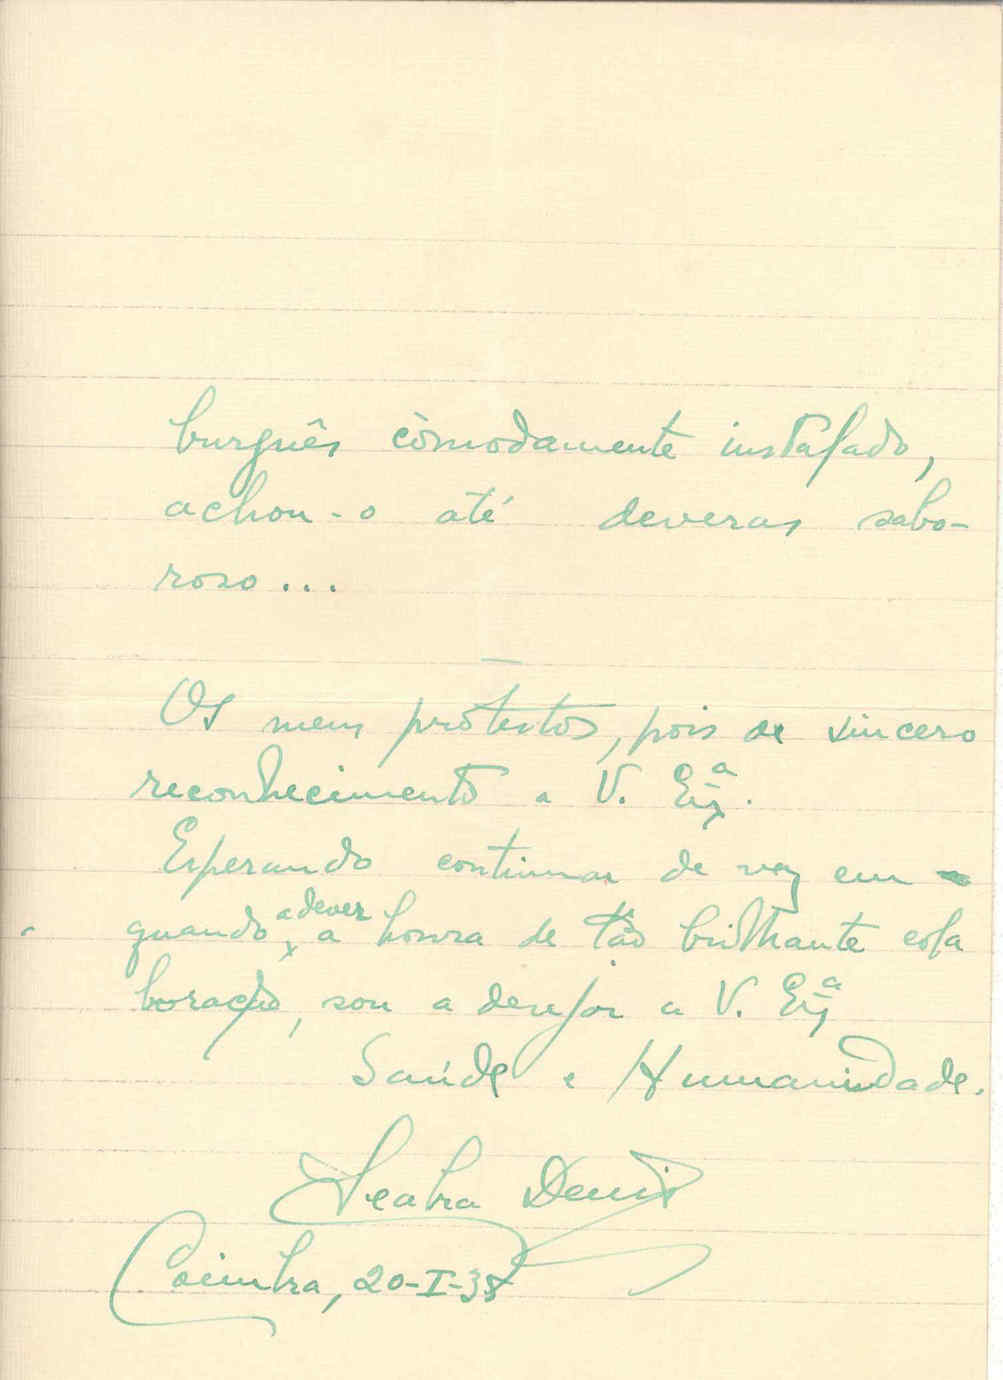 burguês còmodamente instalado,
achou-o até deveras sabo-
roso...
Os meus protestos, pois de sincero
reconhecimento a V. Exª.
Esperando continuar de vez em
quando, a dever a honra de tão brilhante cola
boração, sou a desejar a V. Exª
Saúde e Humanidade.
Seabra Denis
Coimbra, 20-I-38